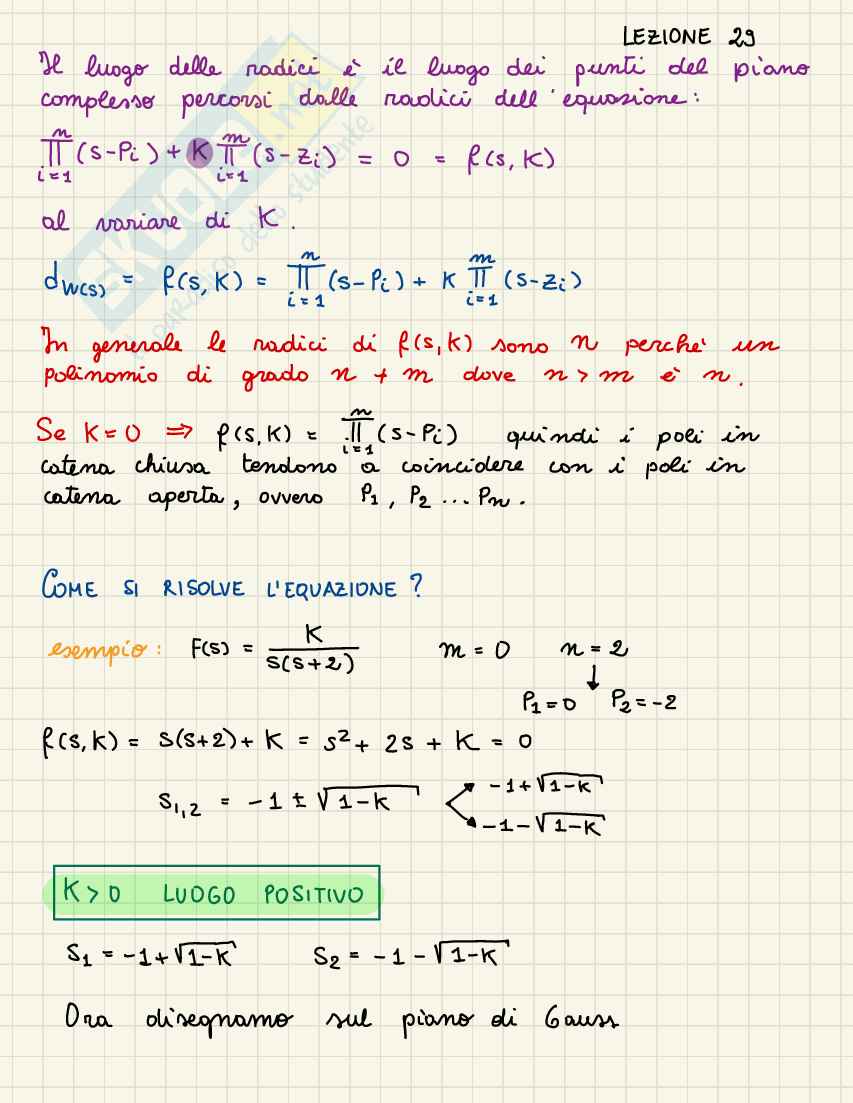 LEZIONE 29
Il luogo delle radici è il luogo dei punti del piano
complesso percorsi dalle radici dell'equazione:
n m
∏ (s-Pi) + K ∏ (s-zi) = 0 = f(s,K)
i=1 i=1
al variare di K.
n m
dW(s) = f(s,K) = ∏ (s-Pi) + K ∏ (s-zi)
i=1 i=1
In generale le radici di f(s,K) sono n perchè un
polinomio di grado n + m dove n > m è n.
n
Se K=0 ⇒ f(s,K) = ∏ (s-Pi) quindi i poli in
i=1
catena chiusa tendono a coincidere con i poli in
catena aperta, ovvero P1, P2 ... Pn.
COME SI RISOLVE L'EQUAZIONE?
esempio: F(s) = K / s(s+2) m = 0 n = 2
↓
P1=0 P2=-2
f(s,k) = s(s+2) + K = s² + 2s + K = 0
S1,2 = -1 ± √1-K
-1+√1-K
-1-√1-K
K>0 LUOGO POSITIVO
S1 = -1+√1-K S2 = -1-√1-K
Ora disegnamo sul piano di Gauss
SKUOLA.net
il paradiso dello studente